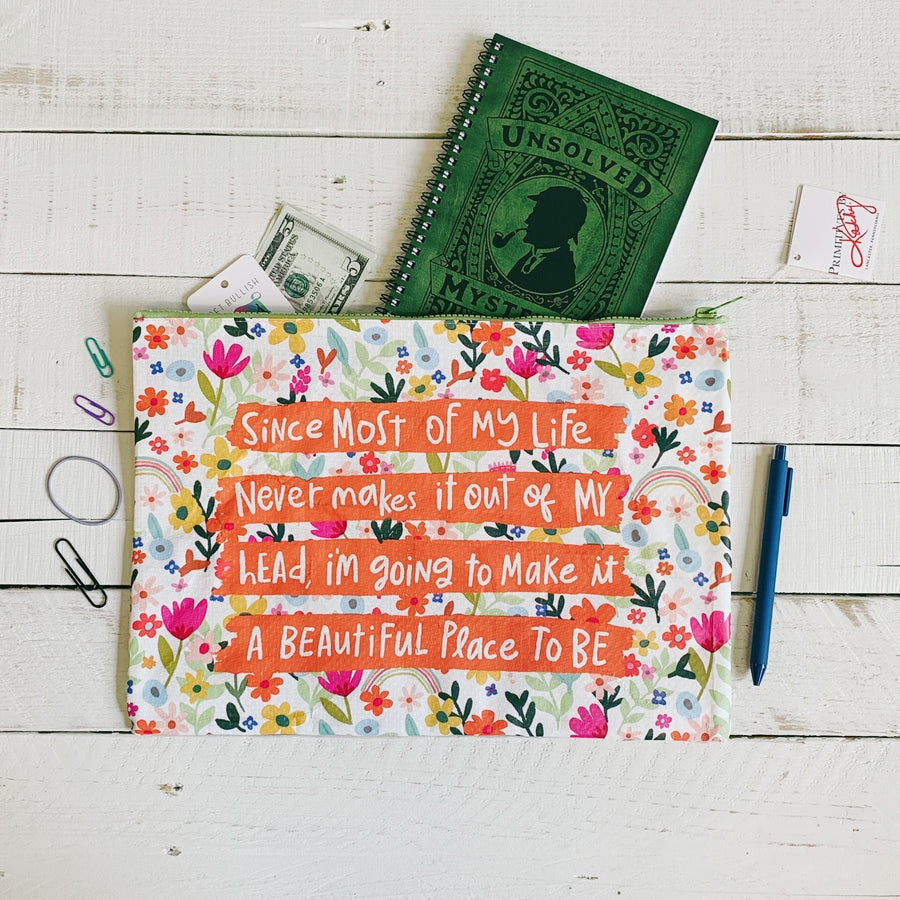 UNSOLVED
MYST
PRIMITIVES BY
Kathy
LANCASTER, PENNSYLVANIA
BULLISH
SINCE MOST OF MY LIFE
NEVER MAKES IT OUT OF MY
HEAD, I'M GOING TO MAKE IT
A BEAUTIFUL PLACE TO BE